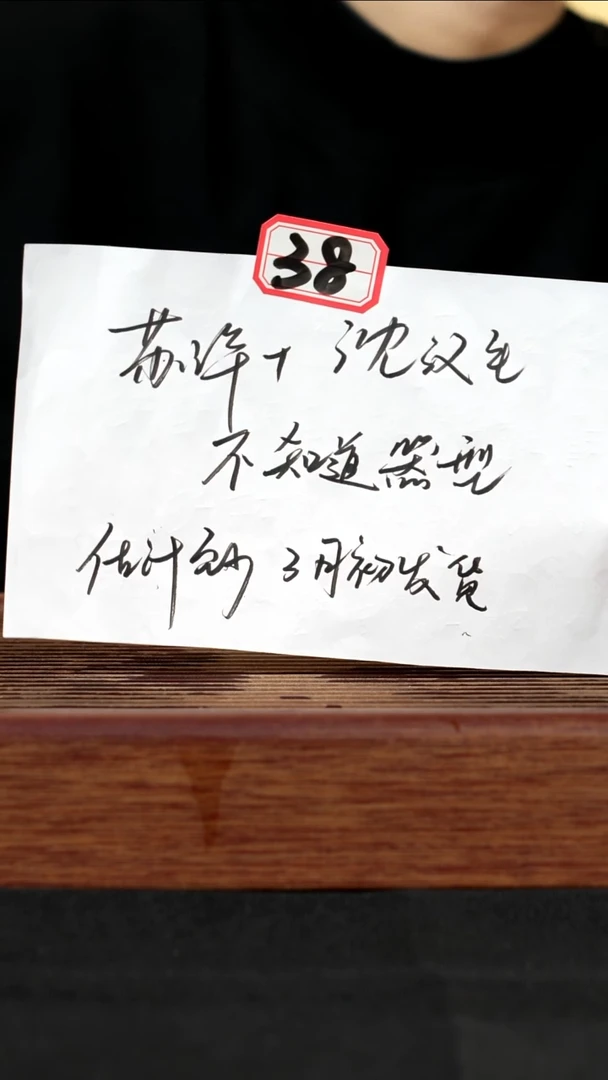 38
苏许+沈汉生
不知道器型
估计到 3月初发货